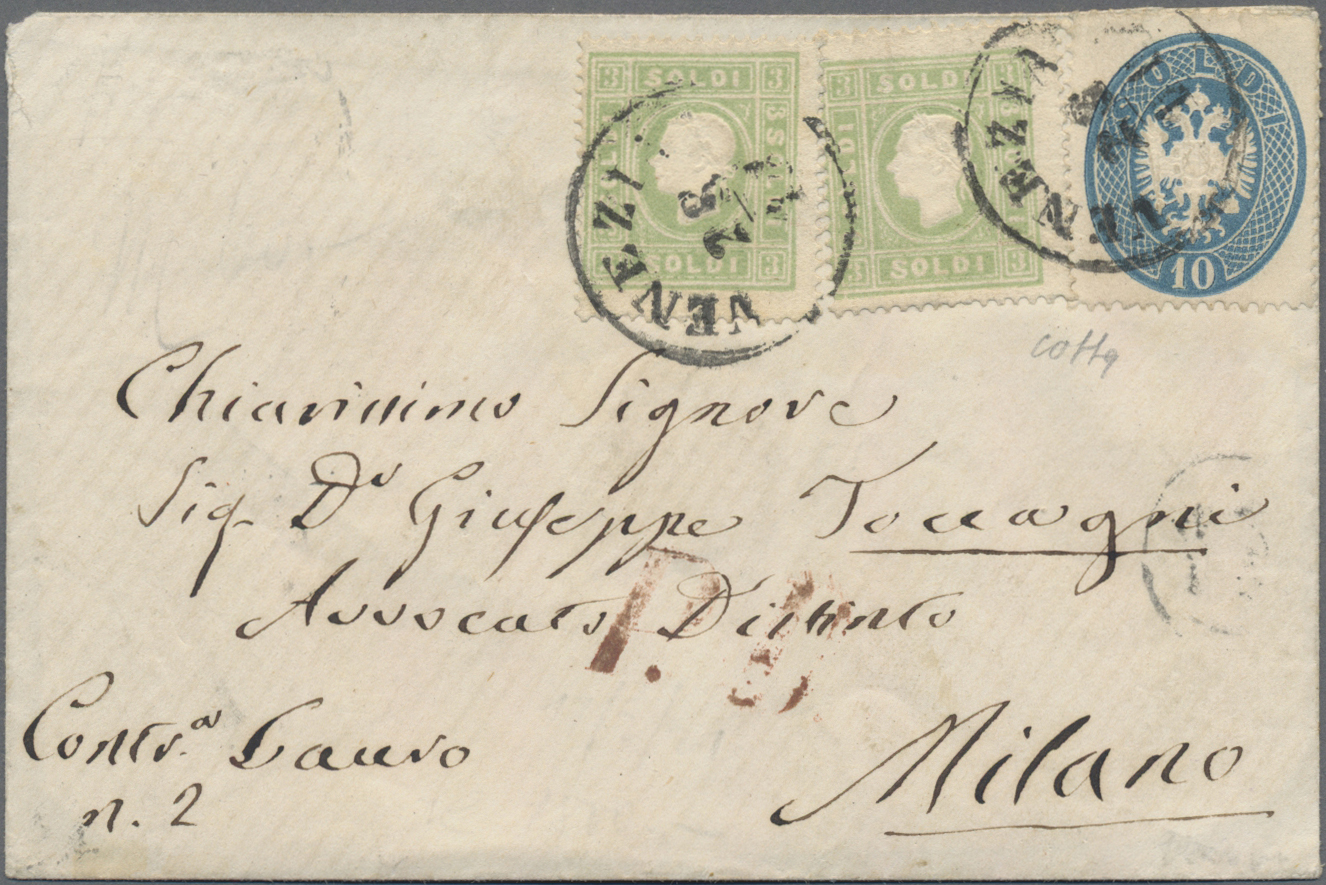 3 SOLDI 3
SOLDI 3
3 SOLDI
SOLDI 3
SOLDI
10
VENEZIA
VENEZIA
28
cotta
Chiarissimo Signore
Sig. Dr Giuseppe Toccagni
Avvocato Distinto
P. D.
Contr.a Lauro
n. 2
Milano